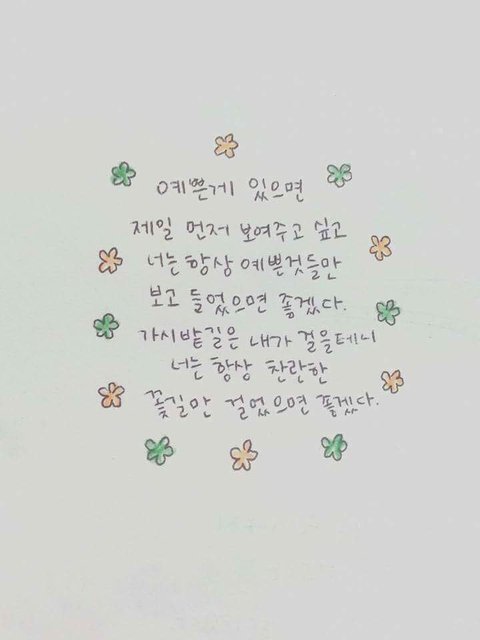 예쁜게 있으면
제일 먼저 보여주고 싶고
너는 항상 예쁜것들만
보고 들었으면 좋겠다.
가시밭길은 내가 걸을테니
너는 항상 찬란한
꽃길만 걸었으면 좋겠다.